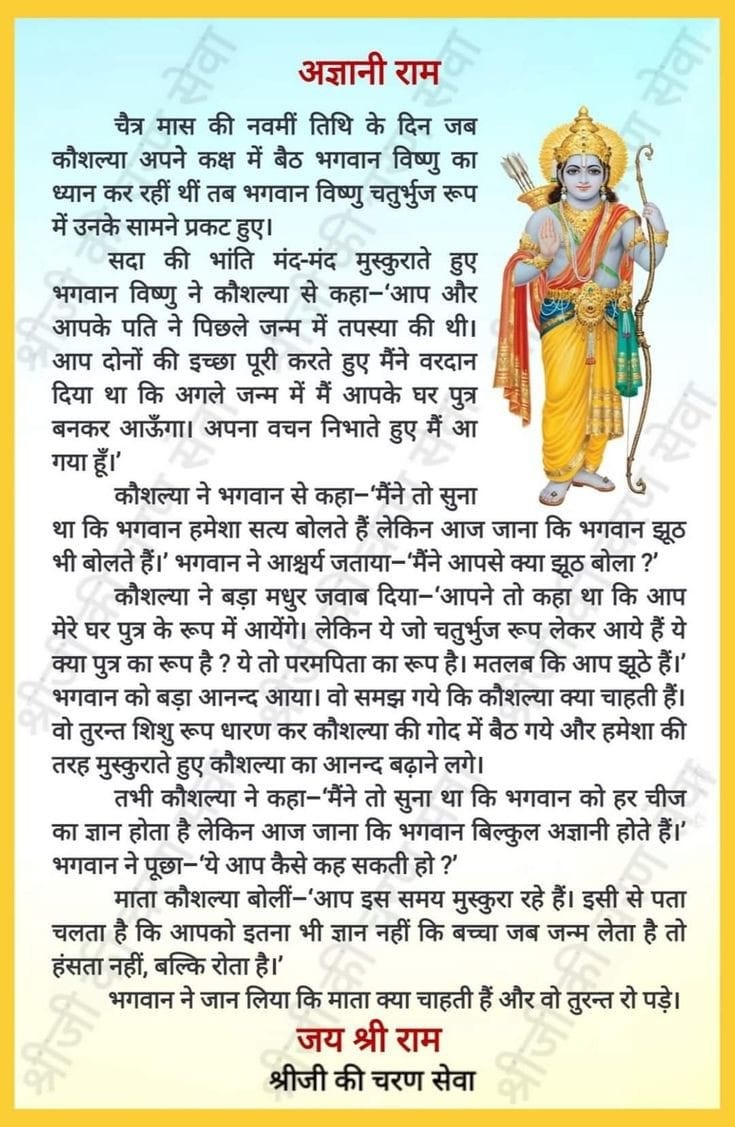 अज्ञानी राम
चैत्र मास की नवमीं तिथि के दिन जब
कौशल्या अपने कक्ष में बैठ भगवान विष्णु का
ध्यान कर रहीं थीं तब भगवान विष्णु चतुर्भुज रूप
में उनके सामने प्रकट हुए।
सदा की भांति मंद-मंद मुस्कुराते हुए
भगवान विष्णु ने कौशल्या से कहा–‘आप और
आपके पति ने पिछले जन्म में तपस्या की थी।
आप दोनों की इच्छा पूरी करते हुए मैंने वरदान
दिया था कि अगले जन्म में मैं आपके घर पुत्र
बनकर आऊँगा। अपना वचन निभाते हुए मैं आ
गया हूँ।’
कौशल्या ने भगवान से कहा–‘मैंने तो सुना
था कि भगवान हमेशा सत्य बोलते हैं लेकिन आज जाना कि भगवान झूठ
भी बोलते हैं।’ भगवान ने आश्चर्य जताया–‘मैंने आपसे क्या झूठ बोला ?’
कौशल्या ने बड़ा मधुर जवाब दिया–‘आपने तो कहा था कि आप
मेरे घर पुत्र के रूप में आयेंगे। लेकिन ये जो चतुर्भुज रूप लेकर आये हैं ये
क्या पुत्र का रूप है ? ये तो परमपिता का रूप है। मतलब कि आप झूठे हैं।’
भगवान को बड़ा आनन्द आया। वो समझ गये कि कौशल्या क्या चाहती हैं।
वो तुरन्त शिशु रूप धारण कर कौशल्या की गोद में बैठ गये और हमेशा की
तरह मुस्कुराते हुए कौशल्या का आनन्द बढ़ाने लगे।
तभी कौशल्या ने कहा–‘मैंने तो सुना था कि भगवान को हर चीज
का ज्ञान होता है लेकिन आज जाना कि भगवान बिल्कुल अज्ञानी होते हैं।’
भगवान ने पूछा–‘ये आप कैसे कह सकती हो ?’
माता कौशल्या बोलीं–‘आप इस समय मुस्कुरा रहे हैं। इसी से पता
चलता है कि आपको इतना भी ज्ञान नहीं कि बच्चा जब जन्म लेता है तो
हंसता नहीं, बल्कि रोता है।’
भगवान ने जान लिया कि माता क्या चाहती हैं और वो तुरन्त रो पड़े।
जय श्री राम
श्रीजी की चरण सेवा